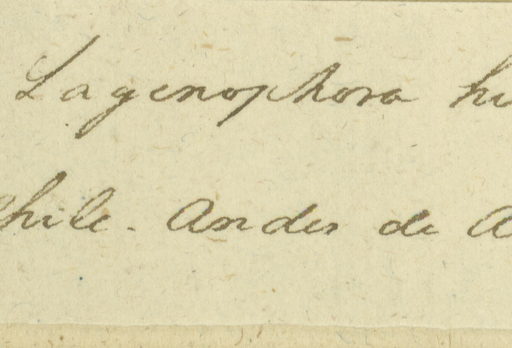 Lagenophora hi
Chile. Andes de A